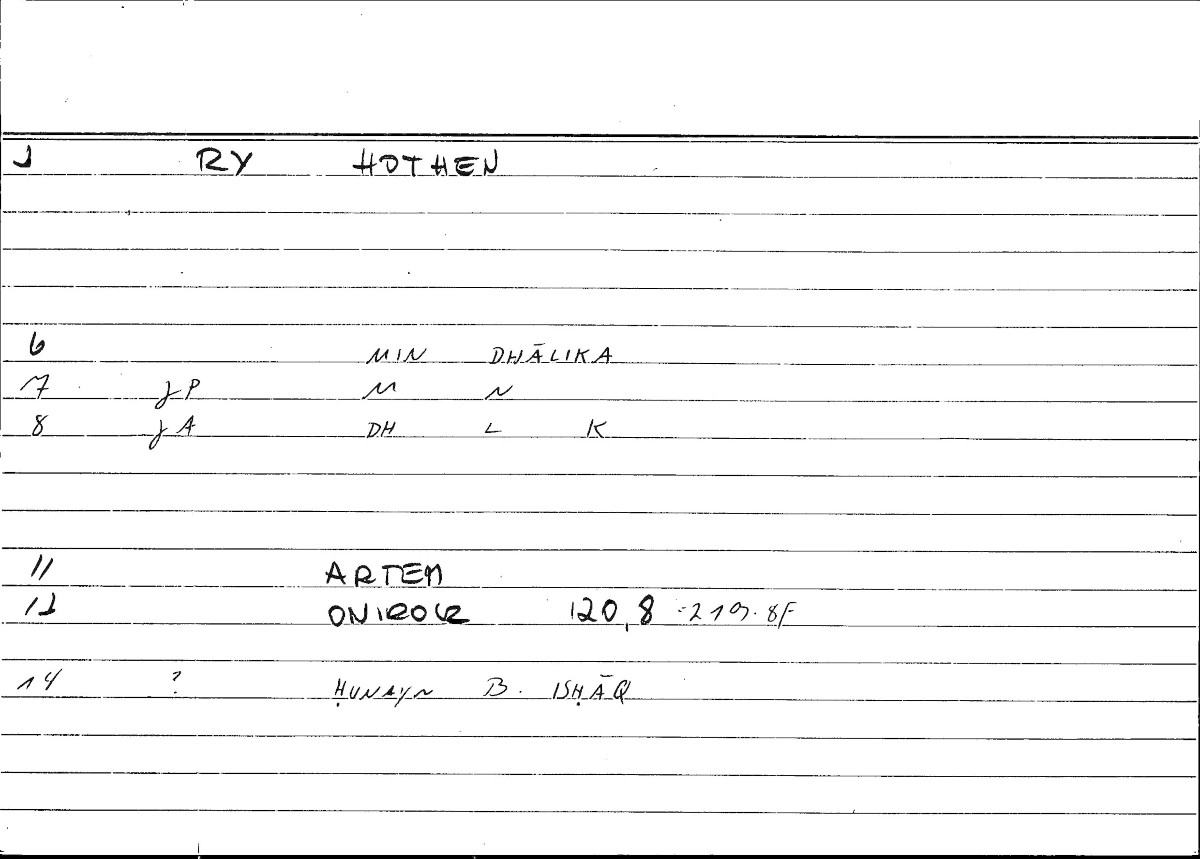 2 RY HOTHEN
6 MIN DHĀLIKA
7 JP M N
8 JA DH L K
11 ARTEM
12 ONIROCR 120,8 =219.8F
14 ? ḤUNAYN B. ISḤĀQ